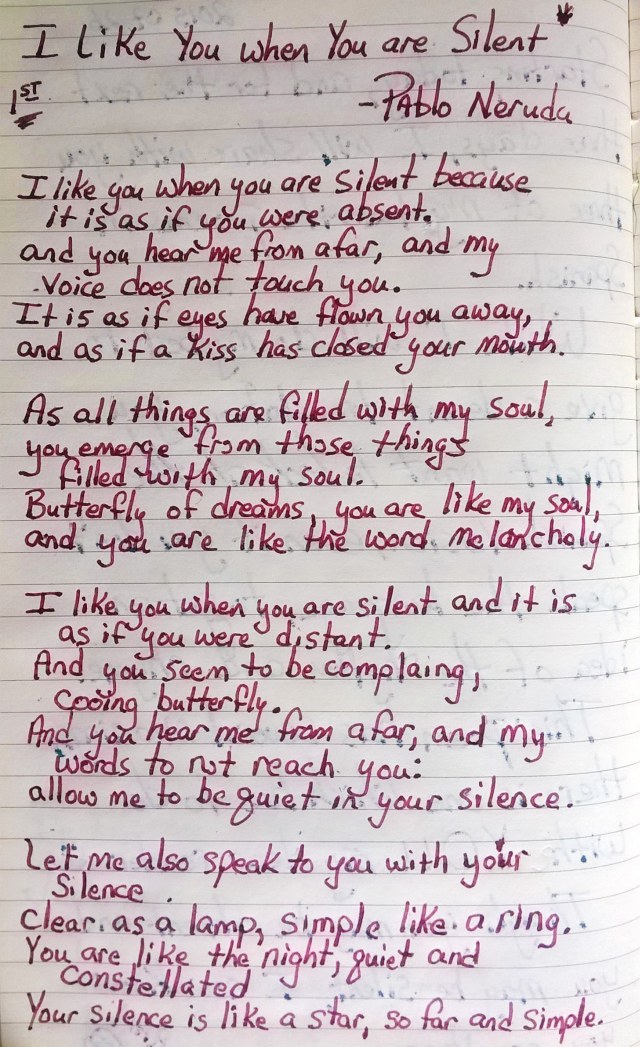 I Like You when You are Silent *
1ST
-Pablo Neruda
I like you when you are silent because
it is as if you were absent.
and you hear me from afar, and my
voice does not touch you.
It is as if eyes have flown you away,
and as if a kiss has closed your mouth.
As all things are filled with my soul,
you emerge from those things
filled with my soul.
Butterfly of dreams, you are like my soul,
and you are like the word melancholy.
I like you when you are silent and it is
as if you were distant.
And you seem to be complaing,
cooing butterfly.
And you hear me from afar, and my
words to not reach you:
allow me to be quiet in your silence.
Let me also speak to you with your
Silence
Clear as a lamp, simple like a ring.
You are like the night, quiet and
constellated
Your silence is like a star, so far and simple.